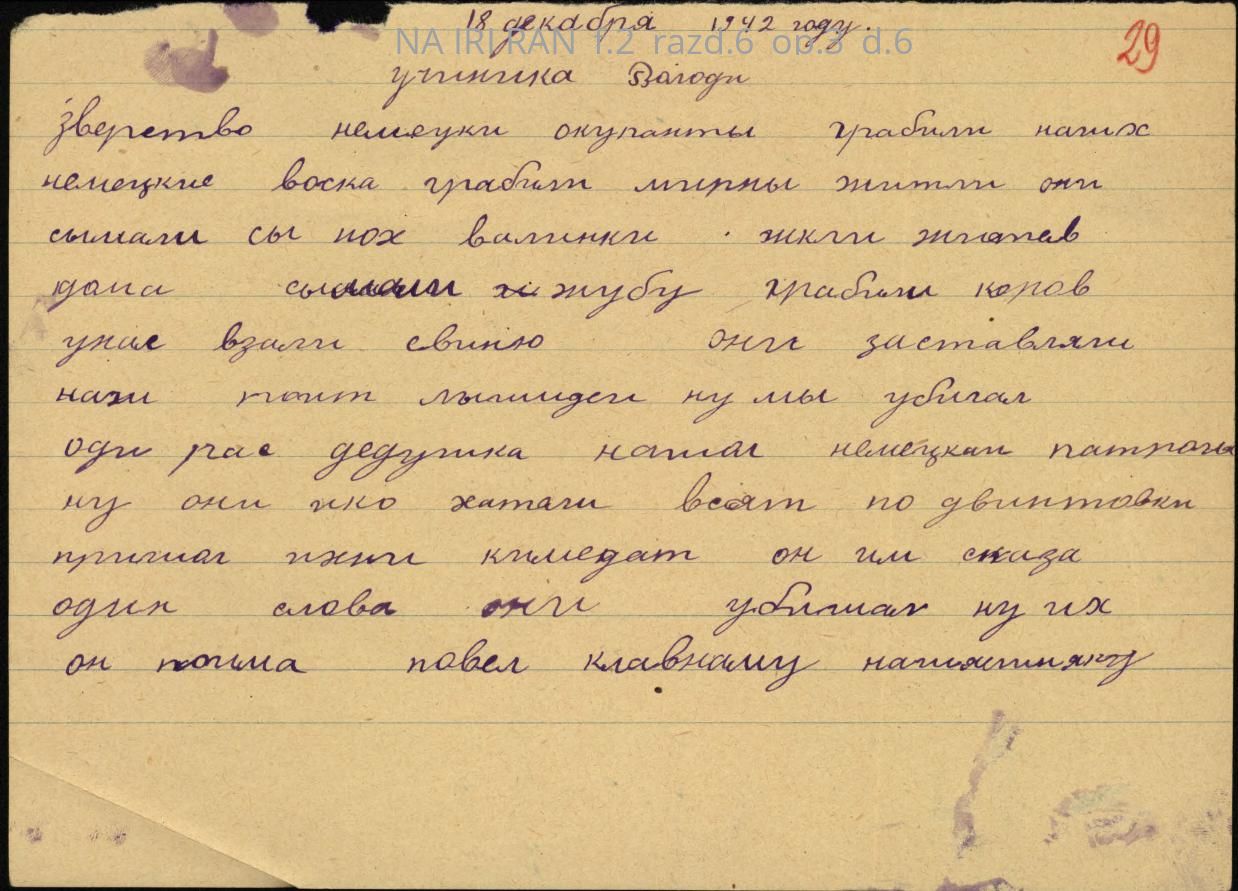 18 декабря 1942 году.
NA IRI RAN f.2 razd.6 op.3 d.6
29
учиника Вологи
зверство немецки окупанты грабили наших
немецкие воска грабили мирны житли они
сымали сы нох валинки жкли жителев
дома сымали жубу грабили коров
унас взали свиню они заставляли
наши ну мы убигал
оди рас дедушка нашол немецкаи патроны
ну они ико хатели всят по двинтовки
пришол ихни кимедат он им сказа
один слова они убишал ну их
он поима повел клавнаму